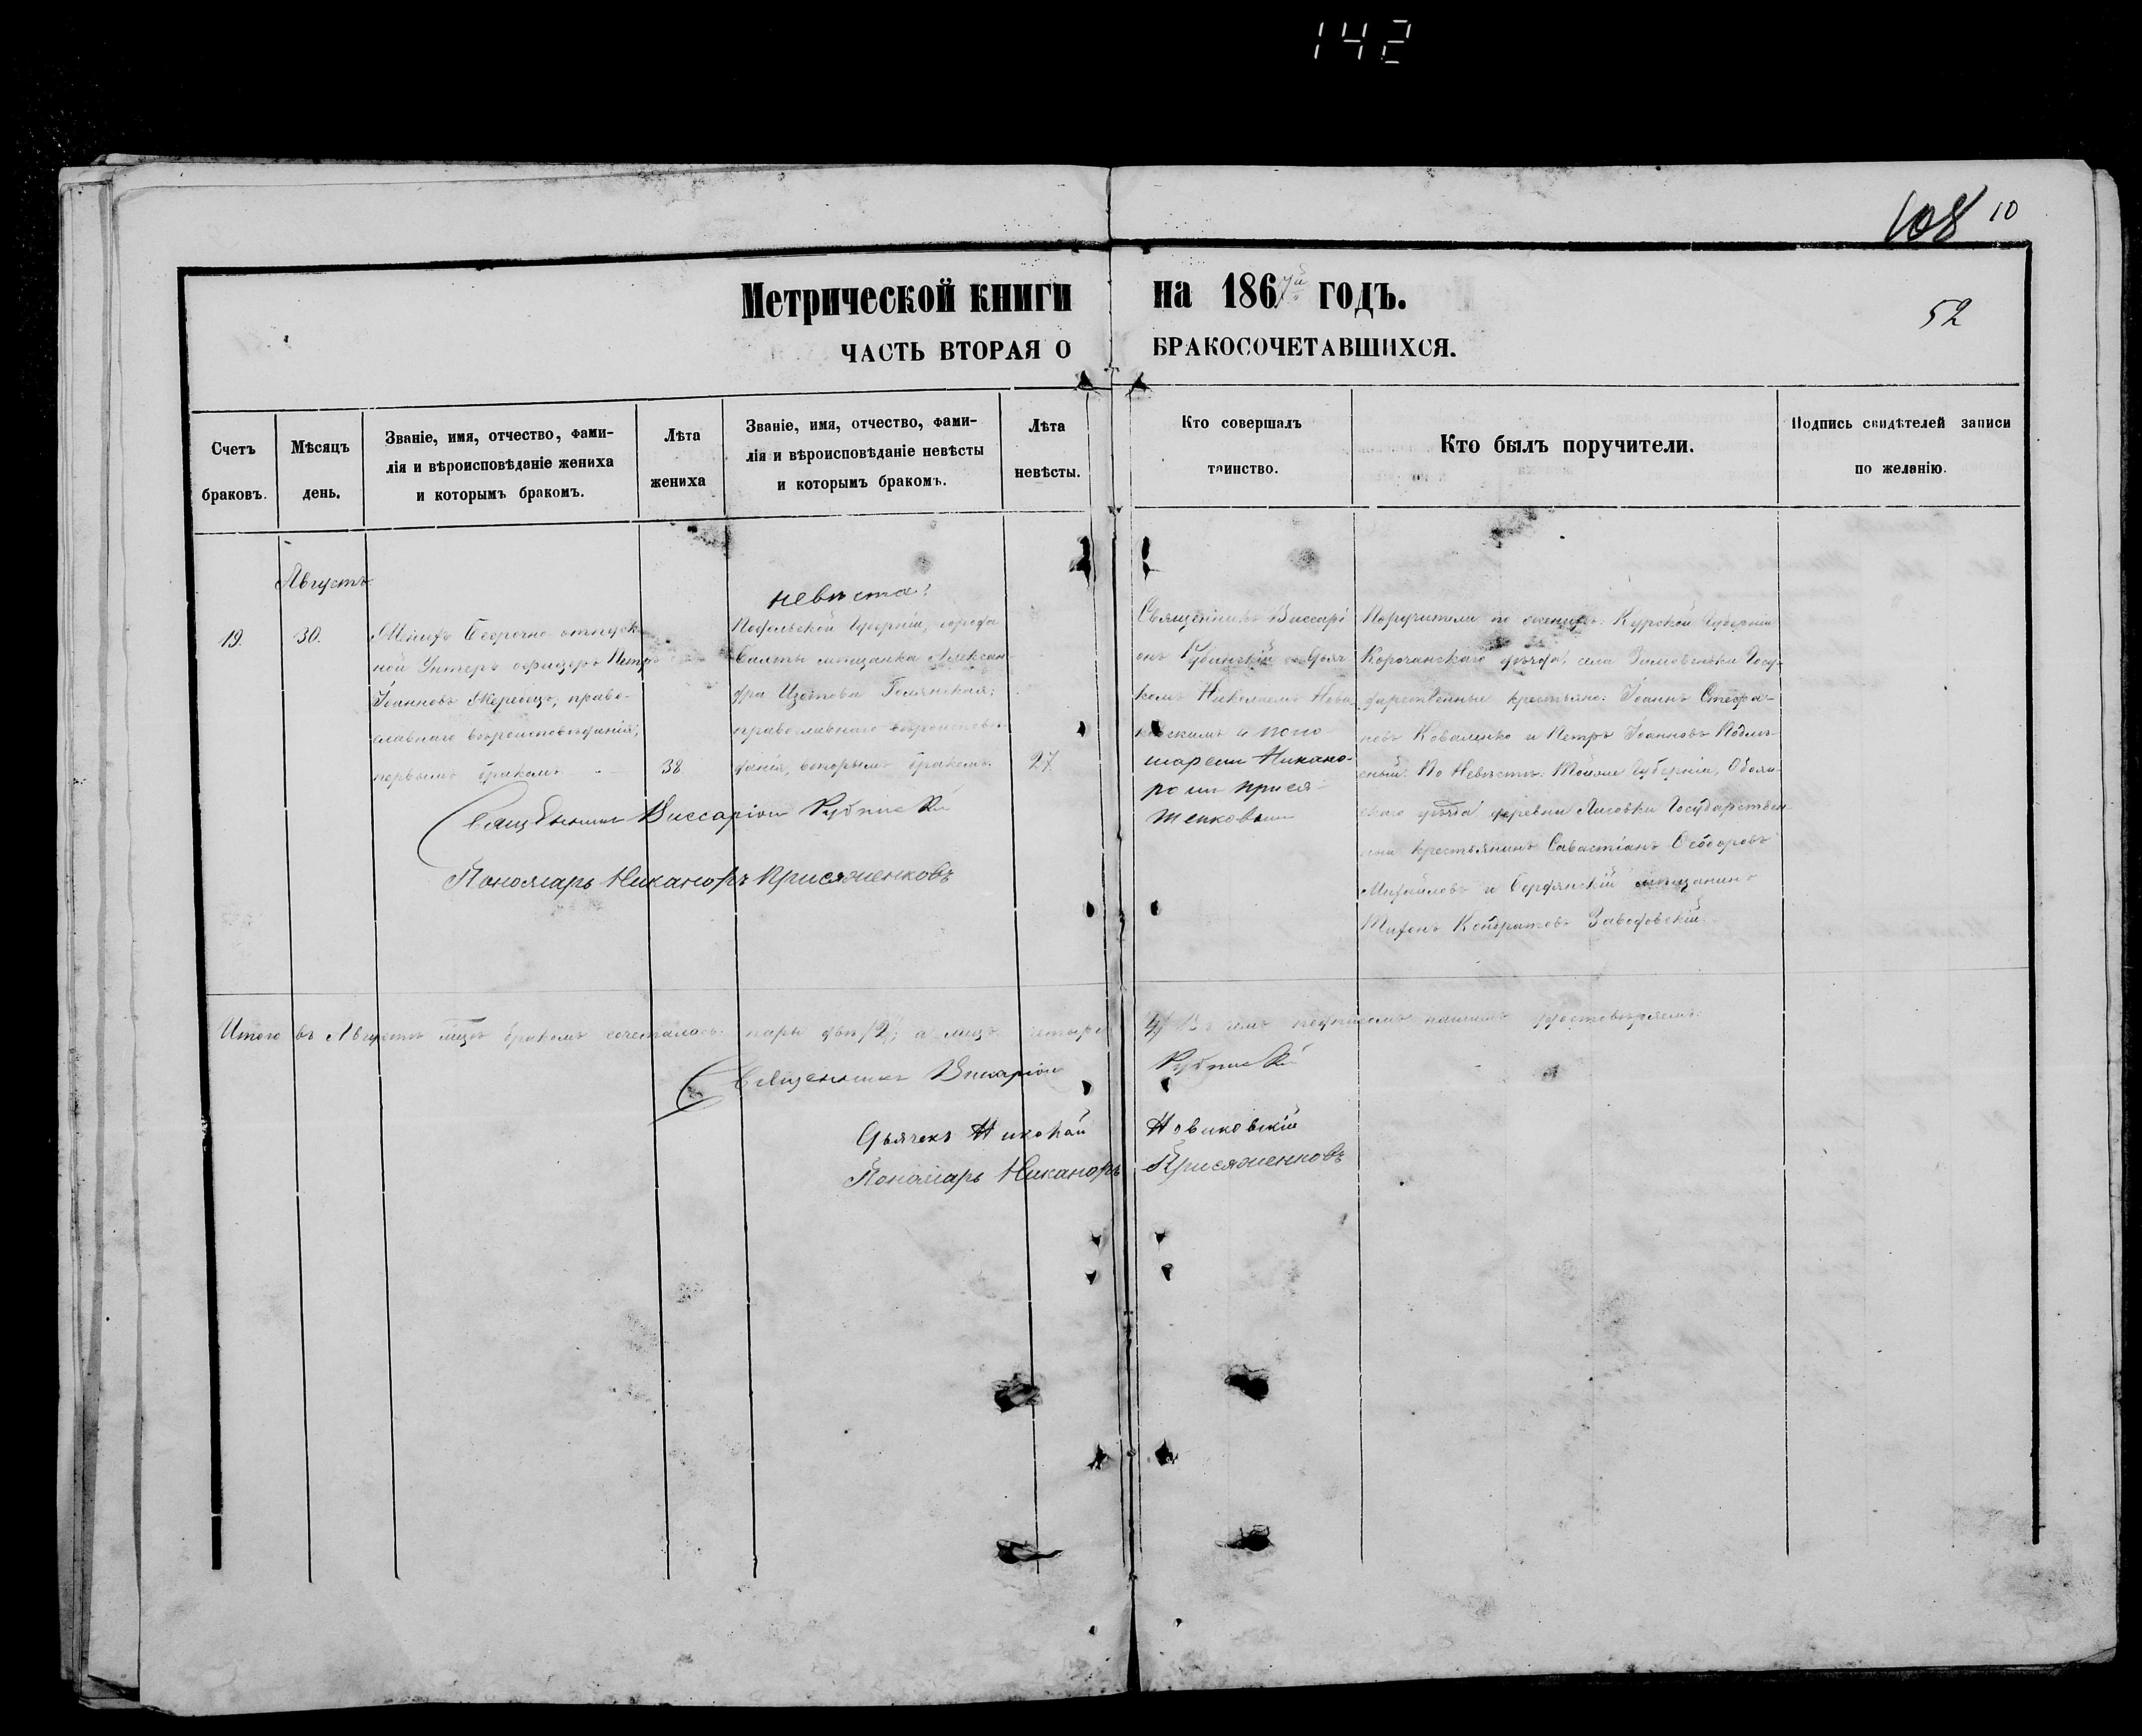 142
108 10
Метрической книги на 1867й годъ.
52
ЧАСТЬ ВТОРАЯ О БРАКОСОЧЕТАВШИХСЯ.
Счетъ браковъ.
Мѣсяцъ день.
Званіе, имя, отчество, фами-
лія и вѣроисповѣданіе жениха
и которымъ бракомъ.
Лѣта жениха
Званіе, имя, отчество, фами-
лія и вѣроисповѣданіе невѣсты
и которымъ бракомъ.
Лѣта невѣсты.
Кто совершалъ
таинство.
Кто былъ поручители.
Подпись свидѣтелей записи
по желанію.
Августъ
19. 30.
Женихъ Безрочно-отпуск-
ной Унтеръ офицеръ Петръ
Іоанновъ Жеребецъ, право-
славнаго вѣроисповѣданія;
первымъ бракомъ
38
невѣста:
Подольской Губерніи, города
Балты мѣщанка Алексан-
дра Изотова
православнаго вѣроисповѣ-
данія, вторымъ бракомъ.
27.
Священникъ Виссарі-
онъ Рубинскій съ Дьяч
комъ Николаемъ Нови
ковскимъ и поно-
маремъ Никано-
ромъ Прися-
женковымъ
Поручители по женихѣ: Курской Губерніи
Корочанскаго уѣзда, села Зимовеньки Госу-
дарственные крестьяне: Іоаннъ Стефа-
новъ Коваленко и Петръ Іоанновъ
По Невѣстѣ: Тойже Губерніи, Обоян-
скаго уѣзда деревни Лисовки Государствен-
ный крестьянинъ Савастіанъ Ѳеодоровъ
Михайловъ и мѣщанинъ
Кондратовъ Заводовскій.
Священникъ Виссаріонъ Рубинскій
Пономарь Никаноръ Присяженковъ
Итого въ Августѣ мцѣ бракомъ сочеталось: пары двѣ /2/; а лицъ четыре /4/ Въ чемъ подписомъ нашимъ удостовѣряемъ:
Священникъ Виссаріонъ Рубинскій
Дьячекъ Николай Новиковскій
Пономарь Никаноръ Присяженковъ